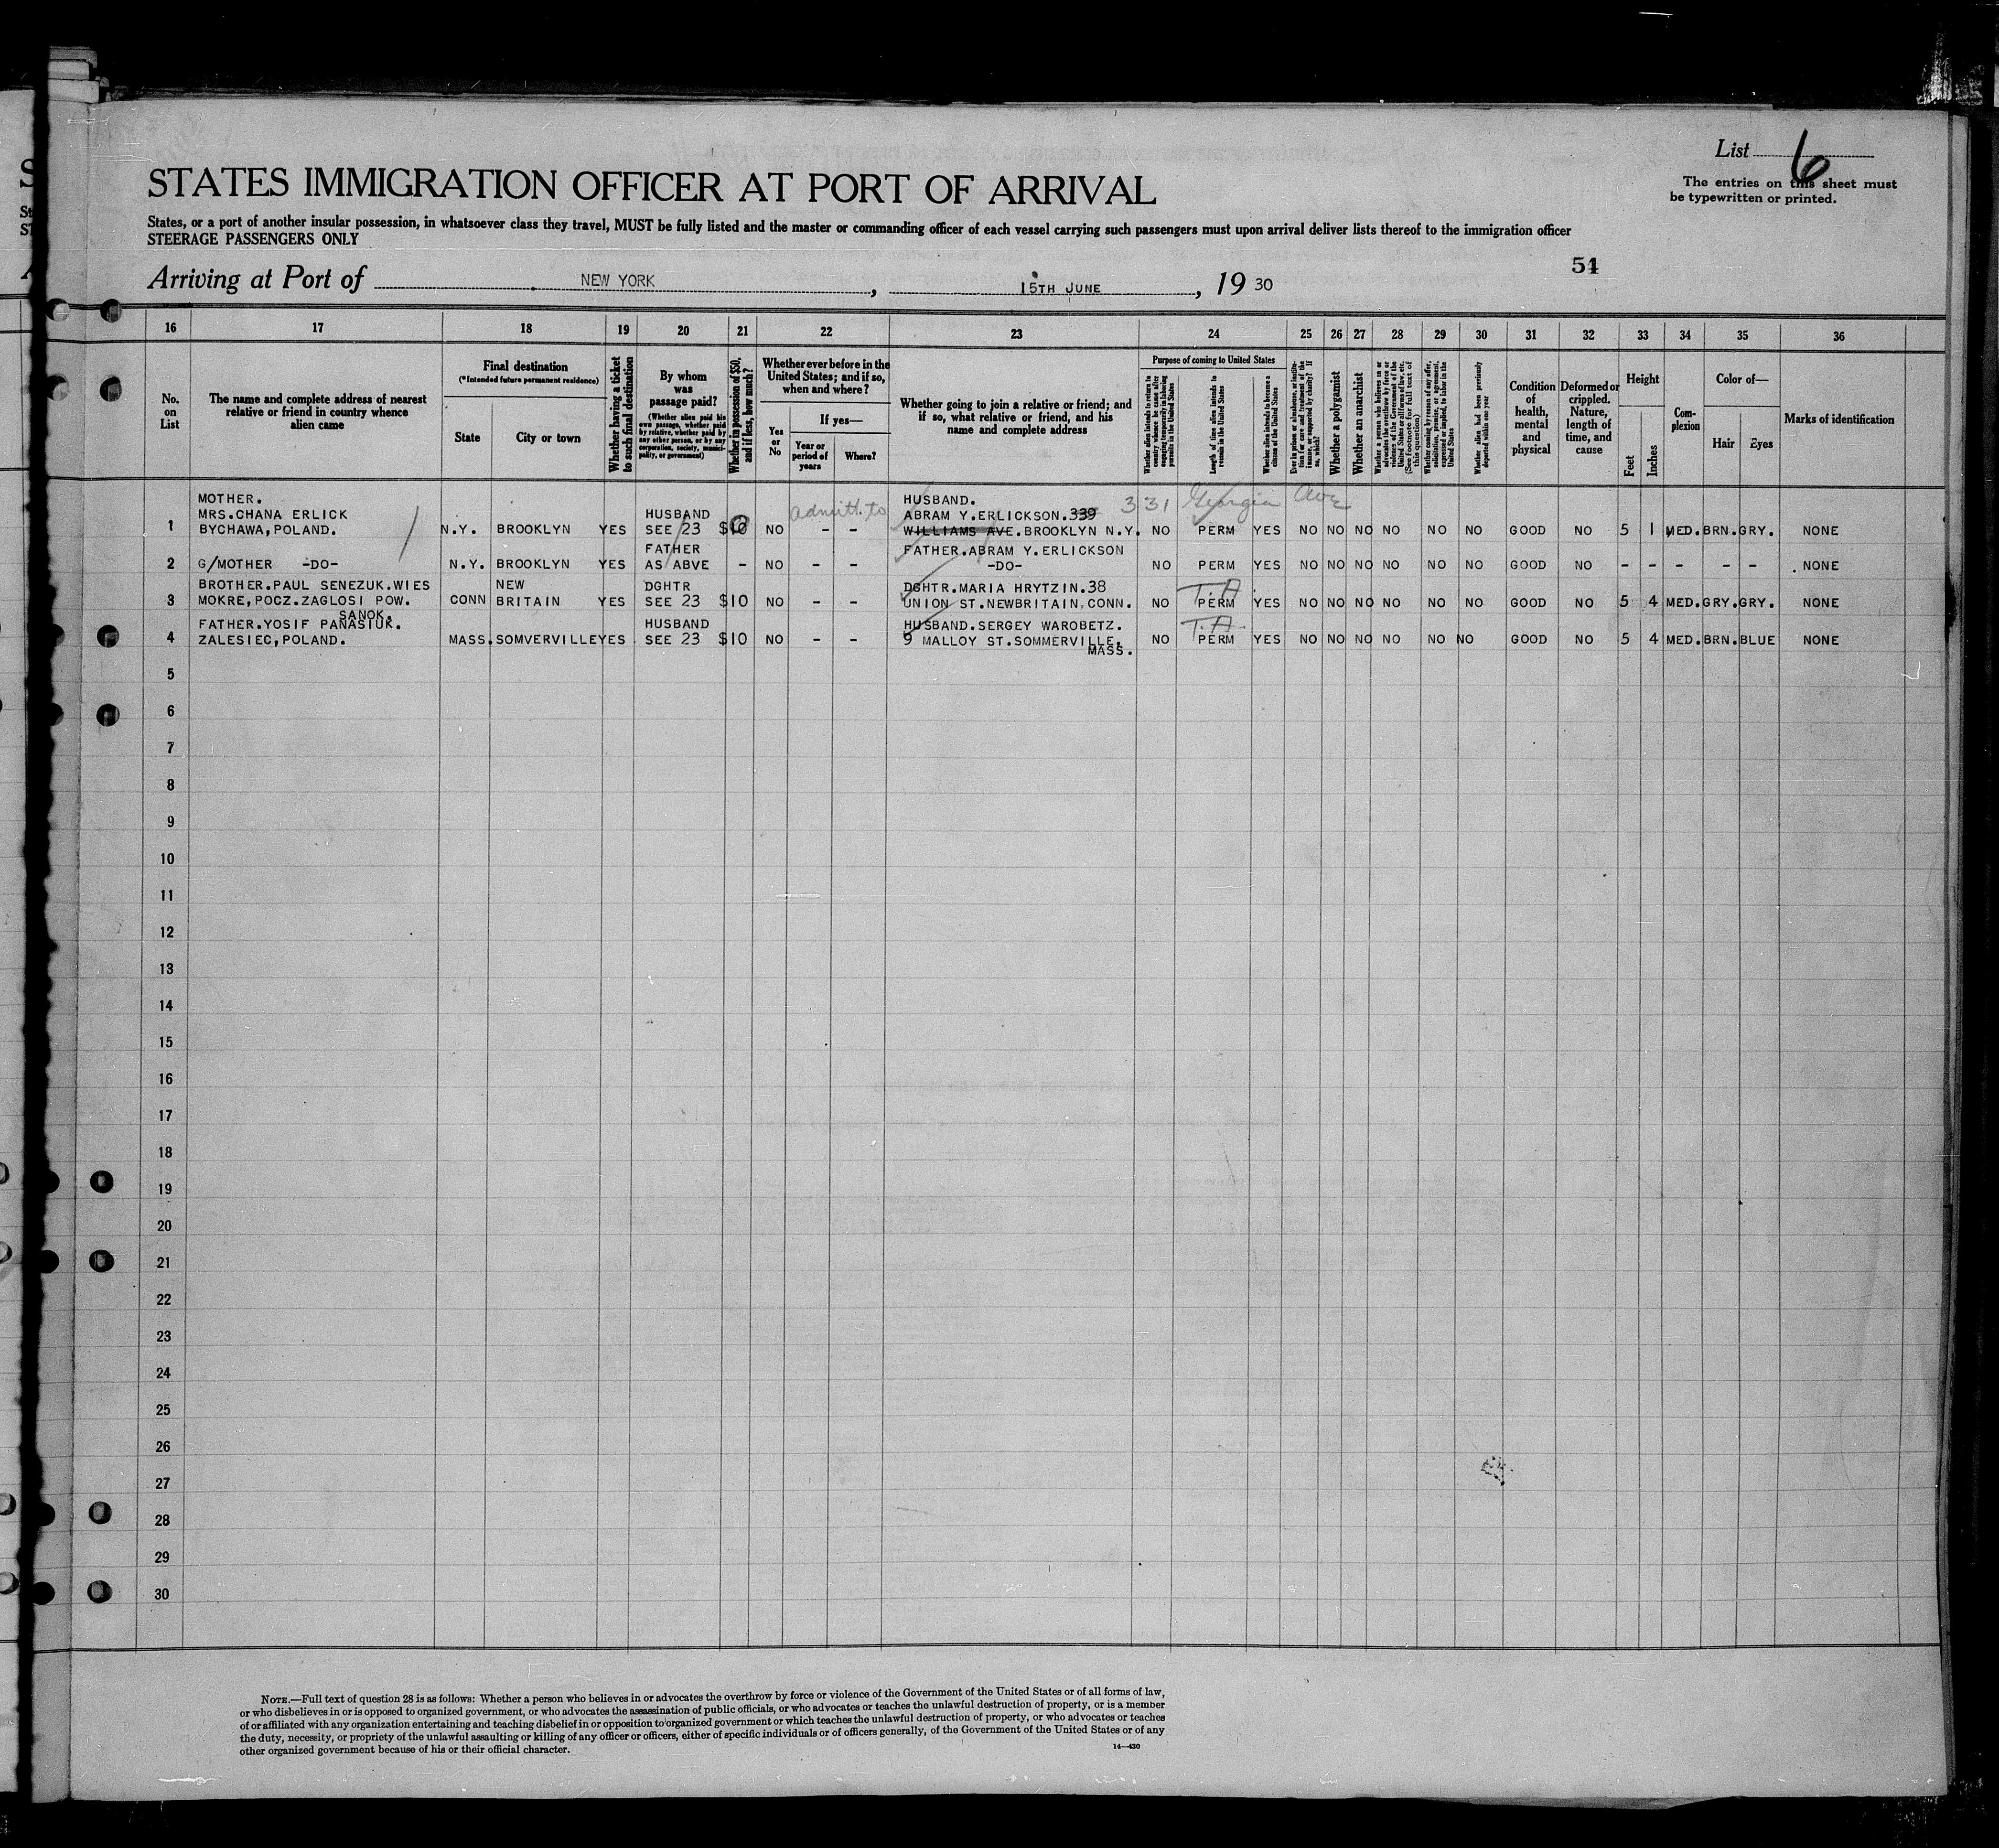 List 6
The entries on this sheet must
be typewritten or printed.
STATES IMMIGRATION OFFICER AT PORT OF ARRIVAL
States, or a port of another insular possession, in whatsoever class they travel, MUST be fully listed and the master or commanding officer of each vessel carrying such passengers must upon arrival deliver lists thereof to the immigration officer
STEERAGE PASSENGERS ONLY
51
Arriving at Port of NEW YORK, 15TH JUNE, 19 30
16 17 18 19 20 21 22 23 24 25 26 27 28 29 30 31 32 33 34 35 36
No.
on
List
The name and complete address of nearest
relative or friend in country whence
alien came
Final destination
(*Intended future permanent residence)
State
City or town
Whether having a ticket
to such final destination
By whom
was
passage paid?
(Whether alien paid his
own passage, whether paid
by relative, whether paid by
any other person, or by any
corporation, society, munici-
pality, or government)
Whether in possession of $50,
and if less, how much?
Whether ever before in the
United States; and if so,
when and where?
Yes
or
No
If yes—
Year or
period of
years
Where?
Whether going to join a relative or friend; and
if so, what relative or friend, and his
name and complete address
Purpose of coming to United States
Whether alien intends to return to
country whence he came after
engaging temporarily in laboring
pursuits in the United States
Length of time alien intends to
remain in the United States
Whether alien intends to become a
citizen of the United States
Ever in prison or almshouse, or institu-
tion for care and treatment of the
insane, or supported by charity? If
so, which?
Whether a polygamist
Whether an anarchist
Whether a person who believes in or
advocates the overthrow by force or
violence of the Government of the
United States or all forms of law, etc.
(See footnote for full text of
this question)
Whether coming by reason of any offer,
solicitation, promise, or agreement,
expressed or implied, to labor in the
United States
Whether alien had been previously
deported within one year
Condition
of
health,
mental
and
physical
Deformed or
crippled.
Nature,
length of
time, and
cause
Height
Feet
Inches
Com-
plexion
Color of—
Hair
Eyes
Marks of identification
MOTHER. HUSBAND. 331 Georgia Ave
MRS.CHANA ERLICK HUSBAND admitt. to ABRAM Y.ERLICKSON.339
1 BYCHAWA,POLAND. N.Y. BROOKLYN YES SEE 23 $10 NO - - WILLIAMS AVE.BROOKLYN N.Y. NO PERM YES NO NO NO NO NO NO GOOD NO 5 1 MED. BRN. GRY. NONE
FATHER FATHER.ABRAM Y.ERLICKSON
2 G/MOTHER -DO- N.Y. BROOKLYN YES AS ABVE - NO - - -DO- NO PERM YES NO NO NO NO NO NO GOOD NO - - - - - NONE
BROTHER.PAUL SENEZUK.WIES NEW DGHTR DGHTR.MARIA HRYTZIN.38 T.A.
3 MOKRE,POCZ.ZAGLOSI POW. CONN BRITAIN YES SEE 23 $10 NO - - UNION ST.NEWBRITAIN,CONN. NO PERM YES NO NO NO NO NO NO GOOD NO 5 4 MED. GRY. GRY. NONE
SANOK.
FATHER.YOSIF PANASIUK. HUSBAND HUSBAND.SERGEY WAROBETZ. T.A.
4 ZALESIEC,POLAND. MASS. SOMVERVILLE YES SEE 23 $10 NO - - 9 MALLOY ST.SOMMERVILLE, NO PERM YES NO NO NO NO NO NO GOOD NO 5 4 MED. BRN. BLUE NONE
MASS.
5
6
7
8
9
10
11
12
13
14
15
16
17
18
19
20
21
22
23
24
25
26
27
28
29
30
NOTE.—Full text of question 28 is as follows: Whether a person who believes in or advocates the overthrow by force or violence of the Government of the United States or of all forms of law,
or who disbelieves in or is opposed to organized government, or who advocates the assassination of public officials, or who advocates or teaches the unlawful destruction of property, or is a member
of or affiliated with any organization entertaining and teaching disbelief in or opposition to organized government or which teaches the unlawful destruction of property, or who advocates or teaches
the duty, necessity, or propriety of the unlawful assaulting or killing of any officer or officers, either of specific individuals or of officers generally, of the Government of the United States or of any
other organized government because of his or their official character.
14—430